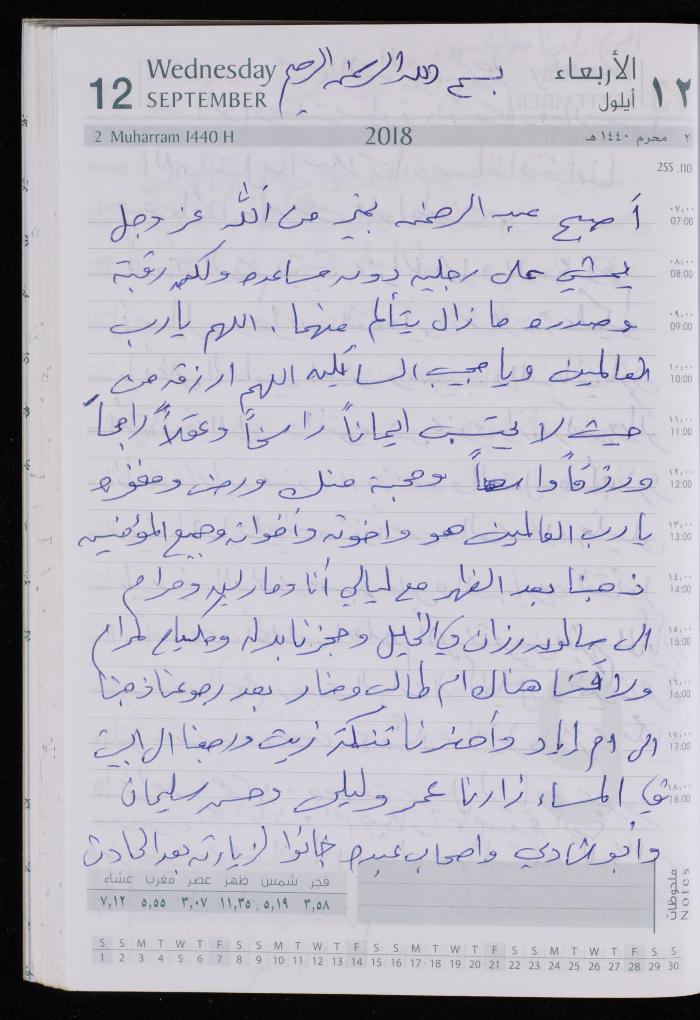 Wednesday بسم الله الرحمن الرحيم الأربعاء
12 SEPTEMBER أيلول ١٢
2 Muharram 1440 H 2018 ٢ محرم ١٤٤٠ هـ
255 .110
أصبح عبد الرحمن بخير من الله عز وجل ٠٧,٠٠ 07:00
يمشي على رجليه دون مساعده ولكن رقبته ٠٨,٠٠ 08:00
وصدره ما زال يتألم منهما. اللهم يا رب ٠٩,٠٠ 09:00
العالمين ويا مجيب السائلين اللهم ارزقه من ١٠,٠٠ 10:00
حيث لا يحتسب ايماناً راسخاً وعقلاً راجحاً ١١,٠٠ 11:00
ورزقاً واسعاً ومحبة منك ورضى ومغفره ١٢,٠٠ 12:00
يا رب العالمين هو واخوته وأخواته وجميع المؤمنين ١٣,٠٠ 13:00
ذهبنا بعد الظهر مع ليالي أنا وماريليه ومرام ١٤,٠٠ 14:00
الى صالون رزان في الخليل وحجزنا بدله ومكياج لمرام ١٥,٠٠ 15:00
ولاقتنا هناك ام طالب ومنار بعد رجوعنا ذهبنا ١٦,٠٠ 16:00
الى ام اياد وأحضرنا تنكة زيت ورجعنا الى البيت ١٧,٠٠ 17:00
في المساء زارنا عمر وليلى وحسن سليمان ١٨,٠٠ 18:00
وأبو شادي واصحاب عبده جائوا لزيارته بعد الحادث
فجر شمس ظهر عصر مغرب عشاء
٣,٥٨ ٥,١٩ ١١,٣٥ ٣,٠٧ ٥,٥٥ ٧,١٢
ملحوظات
Notes
S S M T W T F S S M T W T F S S M T W T F S S M T W T F S S
1 2 3 4 5 6 7 8 9 10 11 12 13 14 15 16 17 18 19 20 21 22 23 24 25 26 27 28 29 30